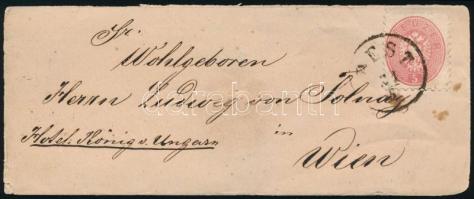 Sr.
Wohlgeboren
Herrn Ludwig von Tolnay
Hotel: König v. Ungarn
in
Wien
PEST
5
darabanth